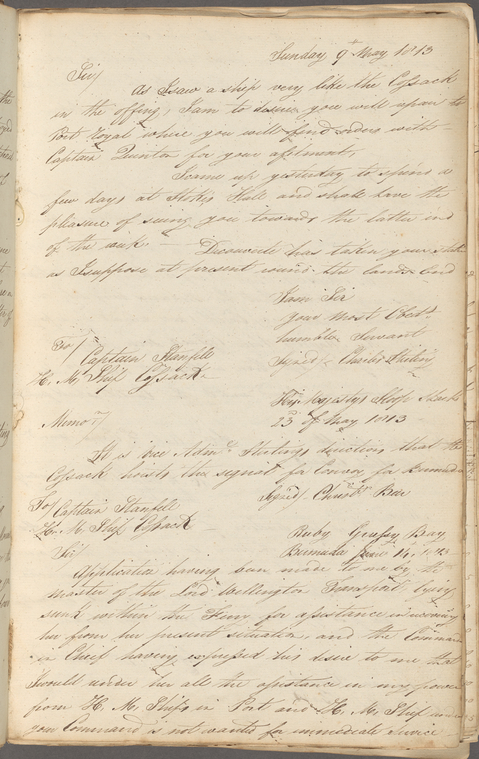 Sunday 9th May 1813
Sir/
As I saw a ship very like the Cossack
in the offing, I am to desire you will repair to
Port Royal where you will find orders with
Captain Quinton for your
I came up yesterday to spend a
few days at Stokes Hall and shall have the
pleasure of seeing you towards the latter end
of the week — Decouverte has taken your
as I suppose at present round the land
I am Sir
your most Obedt
humble Servant
Signed/ Charles Stirling
To/ Captain Stanfell
H. M. Ship Cossack
His Majestys Sloop
23d of May 1813
Memo/
It is Vice Adml Stirlings direction that the
Cossack hoists the signal for Convoy for Bermuda
Signed/ Christr Bell
To/ Captain Stanfell
H. M. Ship Cossack
Ruby Grassy Bay
Bermuda June 14. 1813
Sir/
Application having been made to me by the
master of the Lord Wellington Transport lying
sunk within the Ferry for assistance in removing
her from her present situation and the Commander
in Chief having expressed his desire to me that
I would render her all the assistance in my power
from H. M. Ships in Port and H. M. Ship under
your Command is not wanted for immediate service